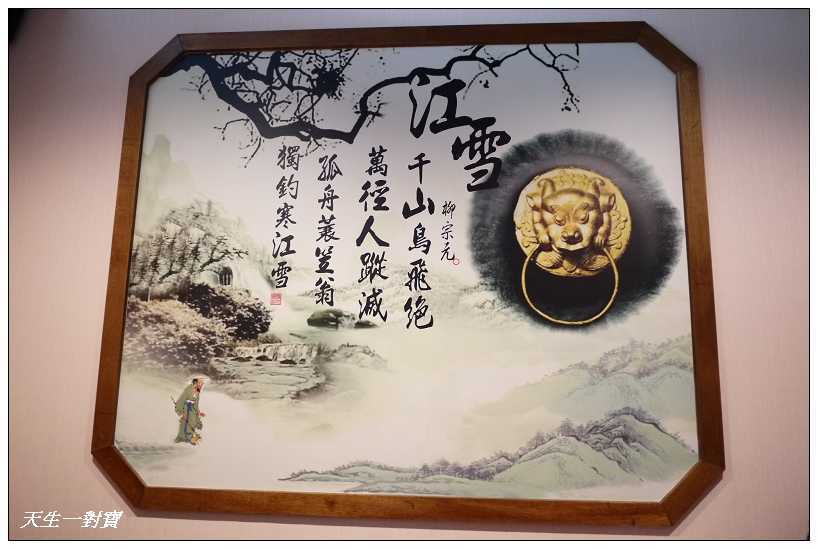 江雪
柳宗元
千山鳥飛絕
萬徑人蹤滅
孤舟蓑笠翁
獨釣寒江雪
天生一對寶